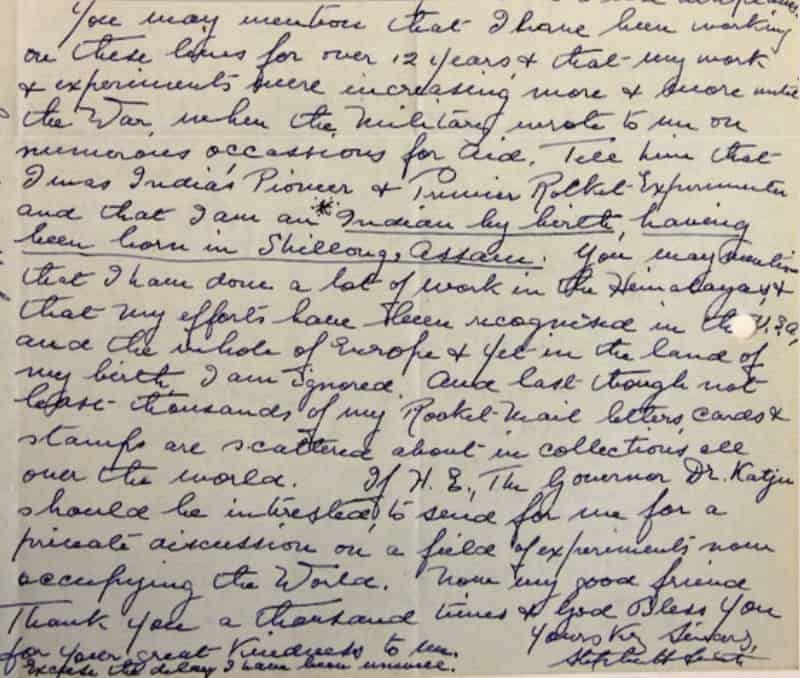 You may mention that I have been working
on these lines for over 12 years & that my work
& experiments were increasing more & more until
the War, when the Military wrote to me on
numerous occassions for aid. Tell him that
I was India's Pioneer & Premier Rocket Experimenter
and that I am an * Indian by birth, having
been born in Shillong, Assam. You may mention
that I have done a lot of work in the Himalayas &
that my efforts have been recognised in the U.S.A,
and the whole of Europe & yet in the land of
my birth, I am ignored. And last though not
least thousands of my Rocket Mail letters, cards &
stamps are scattered about in collections all
over the world. If H. E., The Governor Dr. Katju
should be interested, to send for me for a
private discussion on a field of experiments now
occupying the World. Now my good friend
Thank you a thousand times & God Bless You
for your great kindness to me. Yours Sincerely,
Excuse the delay I have been unwell. Stephen H Smith